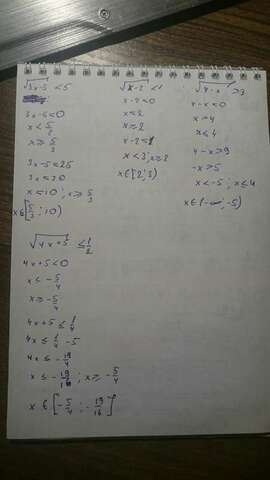 √3x-5 < 5
3x-5<0
x < 5/3
x ≥ 5/3
3x-5<25
3x<30
x<10 ; x ≥ 5/3
x∈[5/3 ; 10)
√x-2 < 1
x-2<0
x<2
x≥2
x-2<1
x<3 ; x≥2
x∈[2 ; 3)
√4-x > 3
4-x<0
x>4
x≤4
4-x>9
-x>5
x<-5 ; x≤4
x∈(-∞ ; -5)
√4x+5 ≤ 1/2
4x+5<0
x≤ -5/4
x≥ -5/4
4x+5 ≤ 1/4
4x ≤ 1/4 -5
4x ≤ -19/4
x ≤ -19/16 ; x ≥ -5/4
x ∈ [-5/4 ; -19/16]